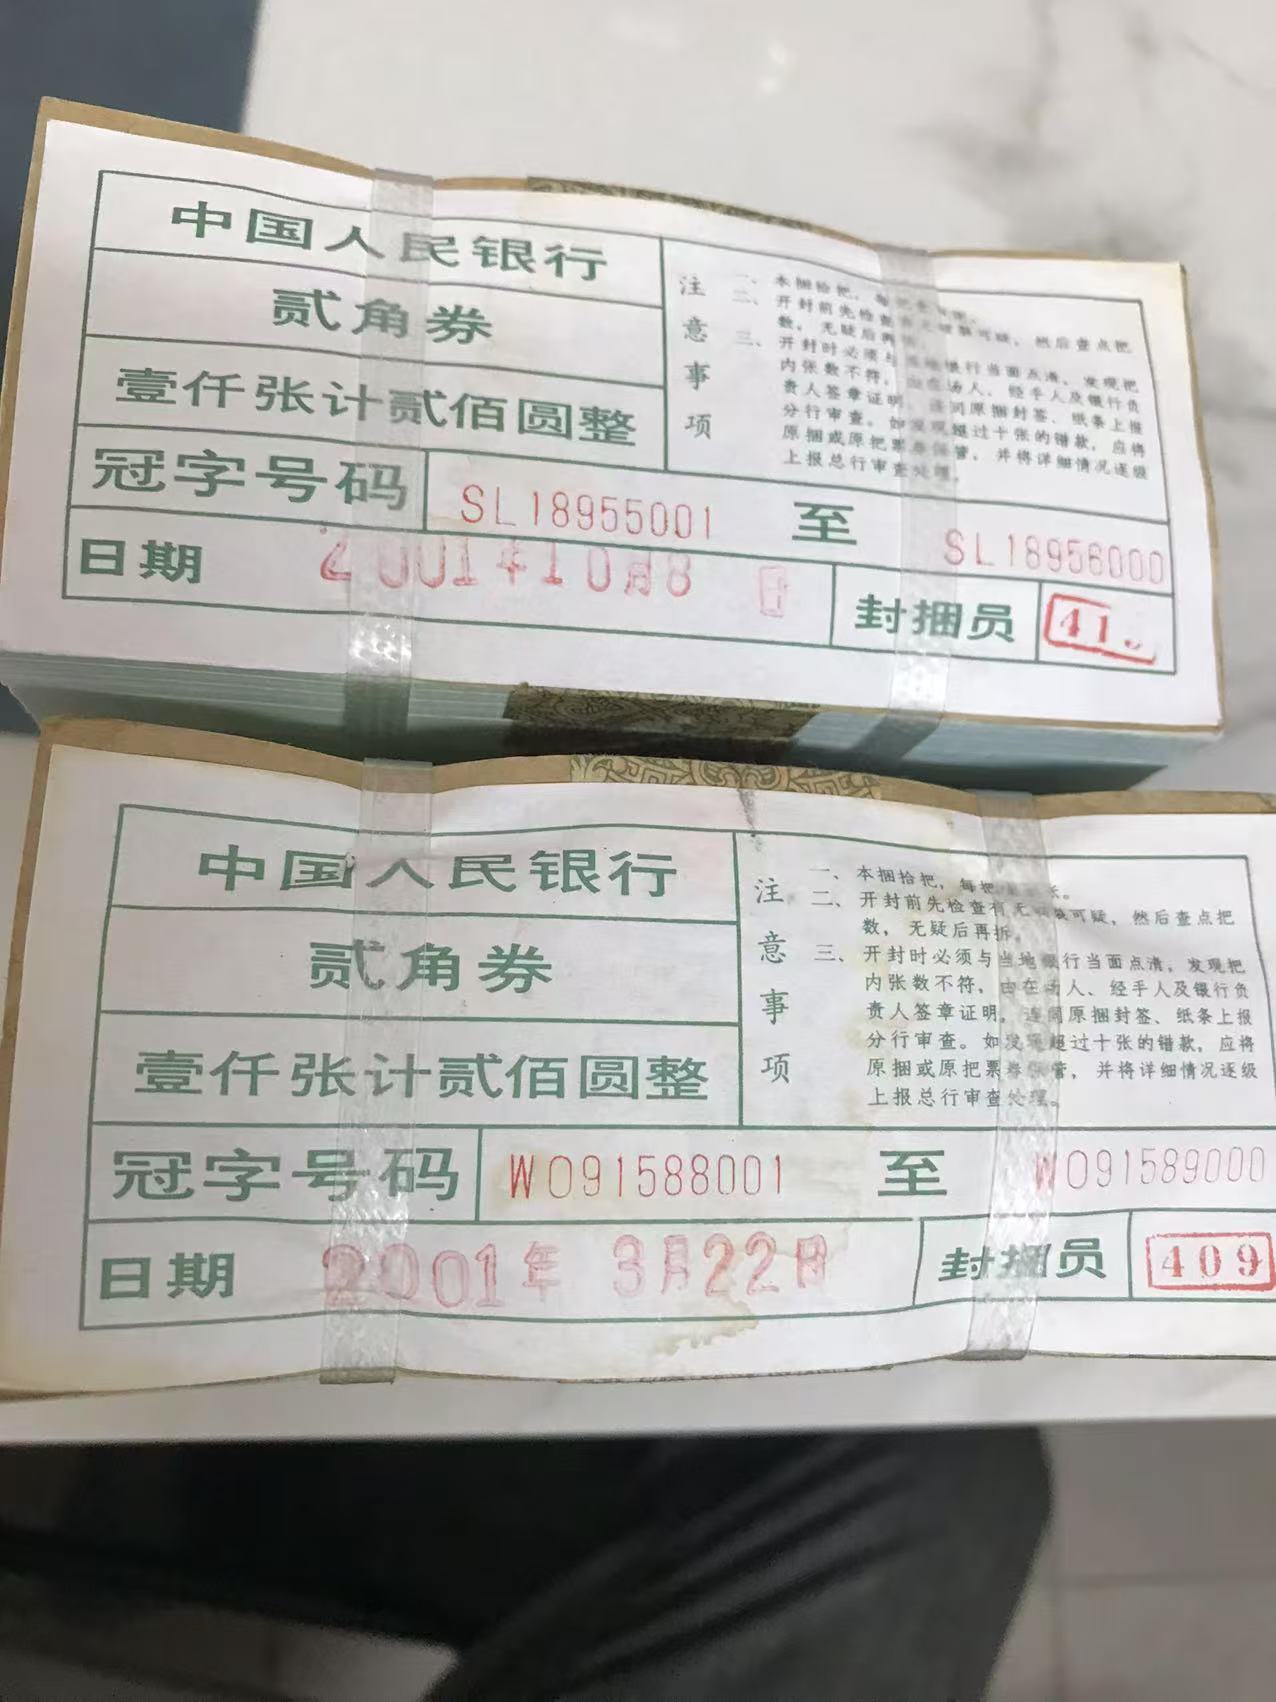 中国人民银行
贰角券
壹仟张计贰佰圆整
注意事项
一、本捆拾把，每把
二、开封前先检查有无 可疑，然后查点把
数，无疑后再拆。
三、开封时必须与当地银行当面点清，发现把
内张数不符，由在场人、经手人及银行负
责人签章证明，连同原捆封签、纸条上报
分行审查。如发现超过十张的错款，应将
原捆或原把票券保管，并将详细情况逐级
上报总行审查处理。
冠字号码 SL18955001 至 SL18956000
日期 2001年10月8日 封捆员 41
中国人民银行
贰角券
壹仟张计贰佰圆整
注意事项
一、本捆拾把，每把 张。
二、开封前先检查有无 可疑，然后查点把
数，无疑后再拆。
三、开封时必须与当地银行当面点清，发现把
内张数不符，由在场人、经手人及银行负
责人签章证明，连同原捆封签、纸条上报
分行审查。如发现超过十张的错款，应将
原捆或原把票券保管，并将详细情况逐级
上报总行审查处理。
冠字号码 WO91588001 至 WO91589000
日期 2001年3月22日 封捆员 409